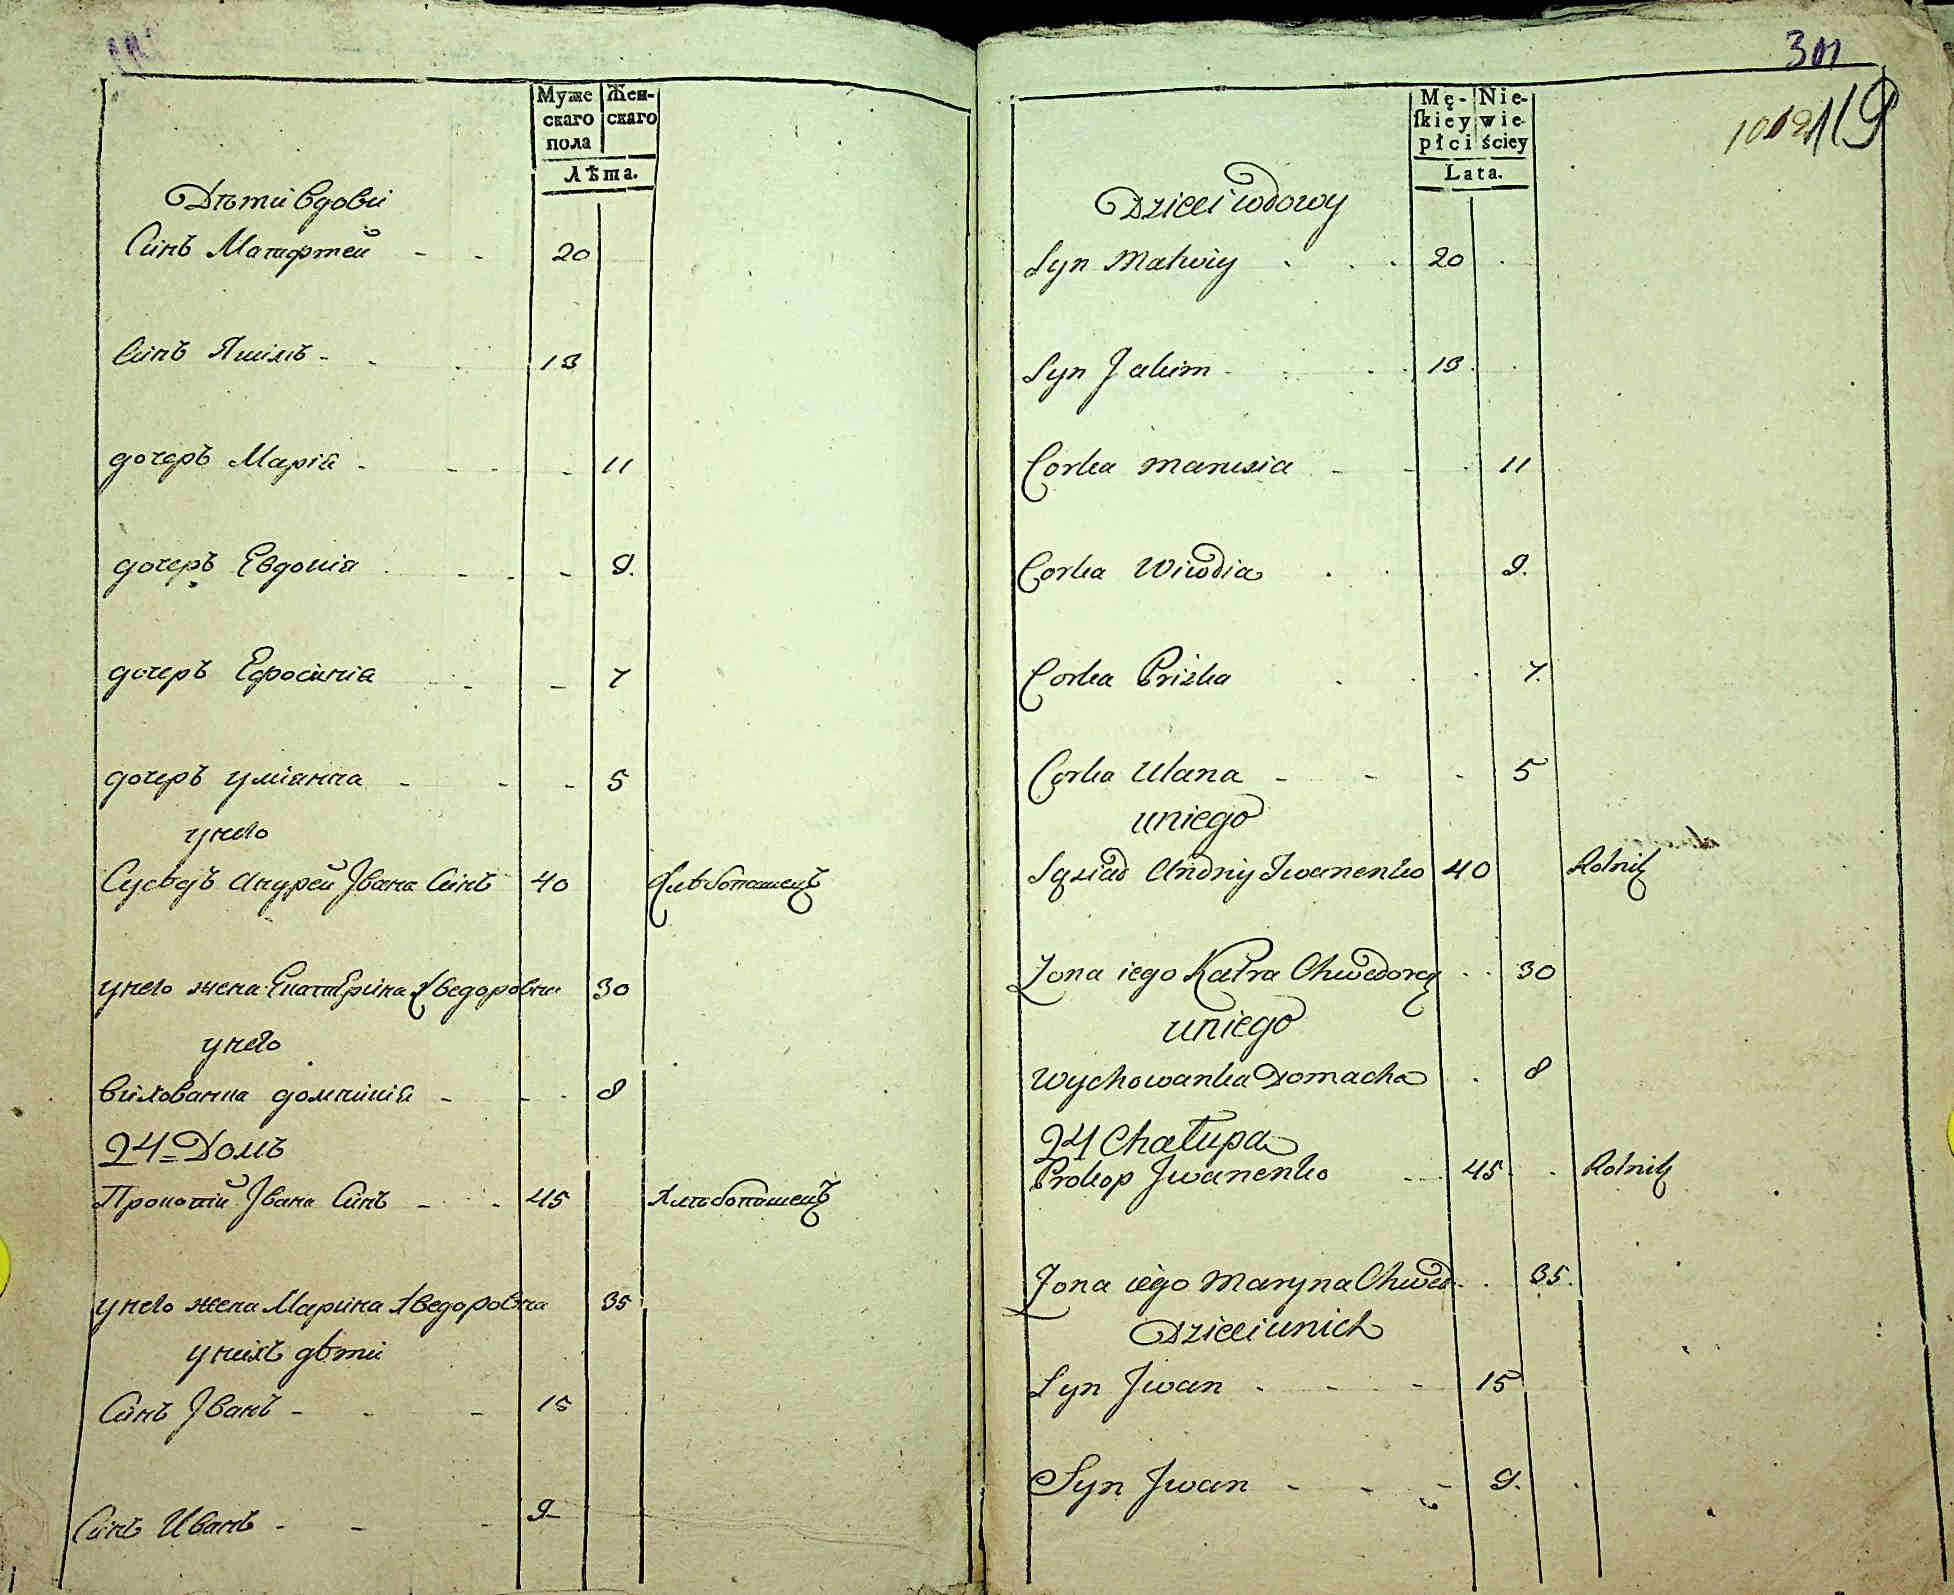 Муже Жен-
скаго скаго
пола
Лѣта.
Дѣти вдови
Синъ Матфтей - - 20
Синъ Якимъ - - 13
дочеръ Марія - - - - 11
дочеръ Евдокія - - - 9.
дочеръ Ефросинія - - 7
дочеръ Улианна - - - 5
у него
Сусѣдъ Андрей Івана Синъ 40 Хлѣбопашецъ
у него жена Екатерина Хведоровна 30
у него
вихованка домникия - - - 8
24= Домъ
Прокопій Івана Синъ - - 45 Хлѣбопашецъ
у него жена Марина Хведоровна 35
у нихъ дѣти
Синъ Іванъ - - - 15
Синъ Иванъ - - - 9
301
119
Mę- Nie-
ſkiey wie-
płci ściey
Lata.
Dzieci wdowy
Syn Matwiy 20
Syn Jakim 13
Corka Marusia - - 11
Corka Wiwdia 9.
Corka Prizka 7.
Corka Ulana - - - 5
uniego
Sąsiad Andriy Iwanenko 40 Rolnik
Zona iego Katra Chwedora 30
uniego
Wychowanka Domacha 8
24 Chałupa
Prokop Jwanenko 45 Rolnik
Zona iego Maryna Chwed 35.
Dzieci unich
Syn Jwan - - - 15
Syn Jwan - - - 9.